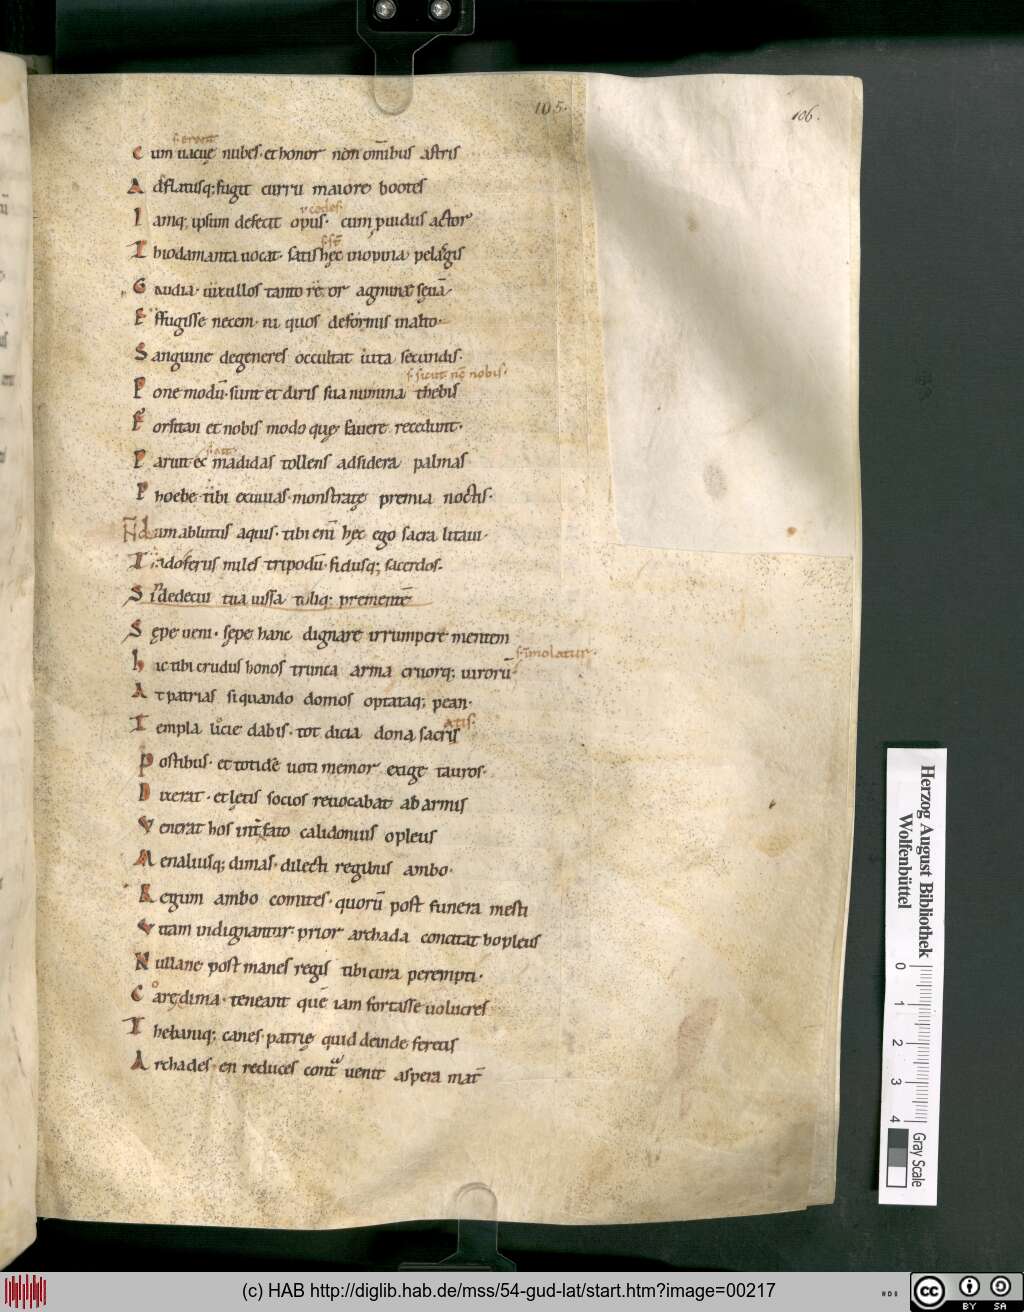 105.
106.
s. erant
Cum uacuę nubes. et honor non om̅ibus astris
Adflatusq; fugit curru maiore bootes
Iamq; ipsum defecit opus. cum puidus actor
s. cędes
Thiodamanta uocat. satis hęc inopina pelasgis
Gaudia. uix
Effugisse necem. ni quos deformis in alto.
Sanguine degeneres occultat uita secundis.
s. sicut nc̅ nobis.
Pone modu̅. sunt et diris sua numina thebis
Forsitan et nobis modo quę fauere recedunt.
Paruit ec madidas tollens ad sidera palmas
Phoebe tibi exuuias. monstratę premia noctis.
Ndum ablutus aquis. tibi eni̅ hęc ego sacra litaui
Tradoferus miles tripodu̅. fidusq; sacerdos.
Si n̅ dedecui tua iussa tuliq; premente̅
Sępe ueni. sępe hanc dignare irrumpere mentem
s. imolatur.
hic tibi crudus honos trunca arma cruorq; uiroru̅
At patrias si quando domos optataq; pean.
Templa licie dabis. tot dicia dona sacris
atis.
Postibus. et totide̅ uoti memor exige tauros.
Dixerat. et lętis socios reuocabat ab armis
Venerat hos int̅ fato calidonius opleus
Menaliusq; dimas. dilecti regibus ambo.
Regum ambo comites. quoru̅ post funera mesti
Vitam indignantur. prior archada concitat hopleus
Nullane post manes regis tibi cura perempti.
Carę dima. teneant que̅ iam fortasse uolucres
Thebaniq; canes. patrię quid deinde feretis
Archades. en reduces cont̅ uenit aspera mat̅
Herzog August Bibliothek
Wolfenbüttel
0 1 2 3 4
Gray Scale
(c) HAB http://diglib.hab.de/mss/54-gud-lat/start.htm?image=00217
cc
BY SA